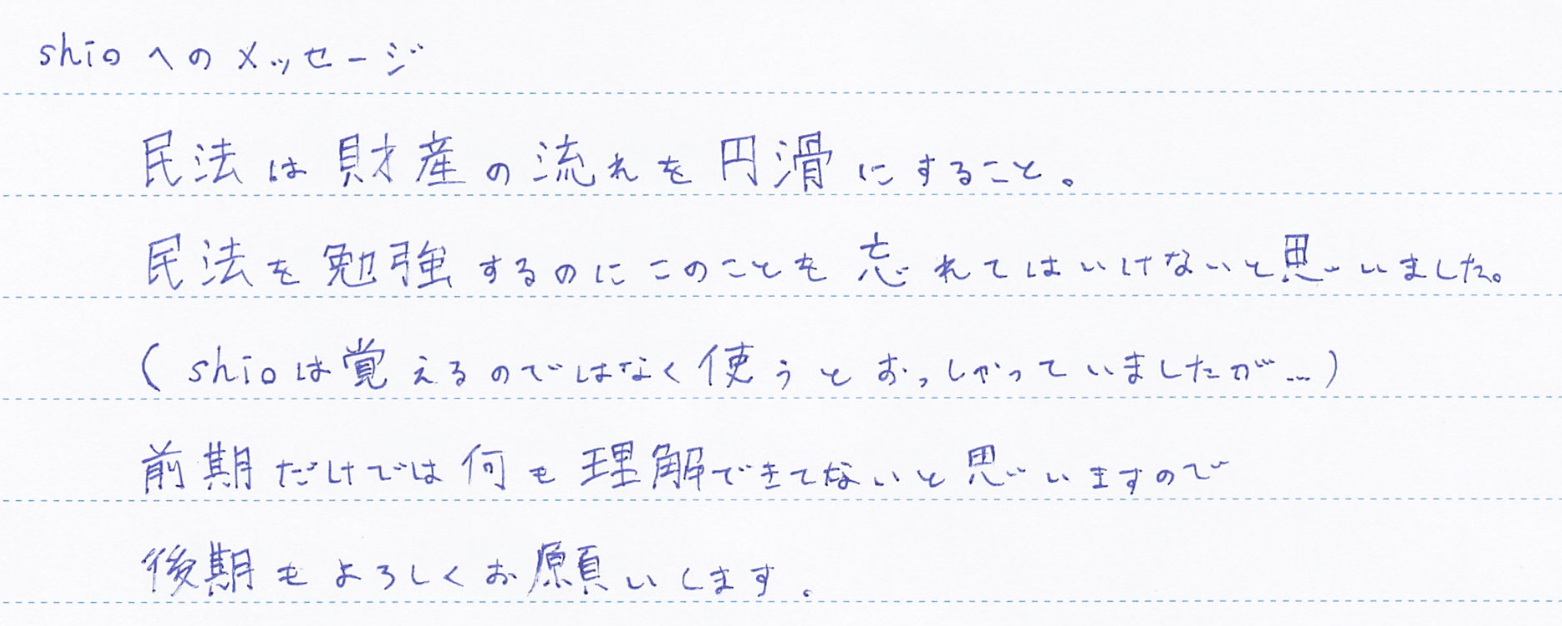 shioへのメッセージ
民法は財産の流れを円滑にすること。
民法を勉強するのにこのことを忘れてはいけないと思いました。
(shioは覚えるのではなく使うとおっしゃっていましたが…)
前期だけでは何も理解できてないと思いますので
後期もよろしくお願いします。